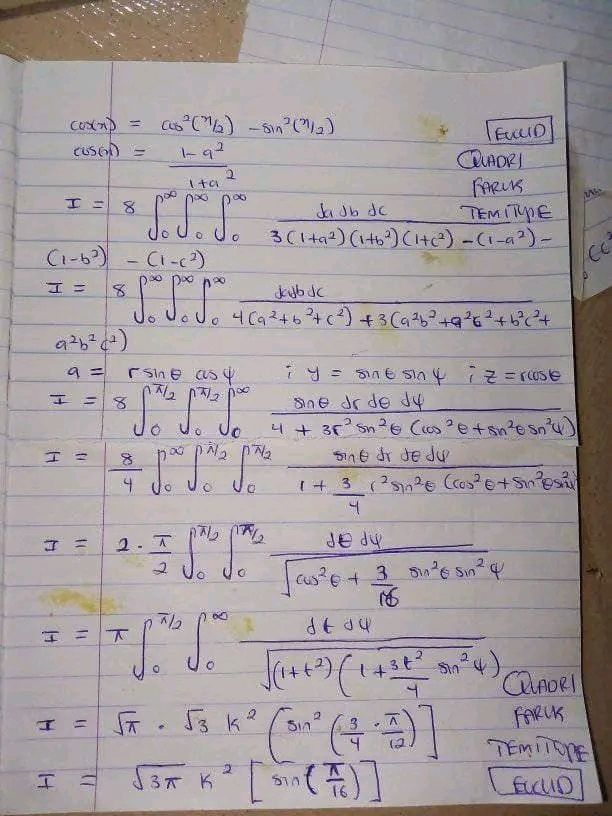 cos(x) = cos²(x/2) - sin²(x/2)
EUCLID
cos(x) = (1 - a²)/(1 + a²)
QUADRI
FARUK
I = 8 ∫₀^∞ ∫₀^∞ ∫₀^∞ da db dc / 3(1+a²)(1+b²)(1+c²) - (1-a²) -
TEMITYPE
(1-b²) - (1-c²)
I = 8 ∫₀^∞ ∫₀^∞ ∫₀^∞ dadbdc / 4(a²+b²+c²) + 3(a²b²+a²c²+b²c²+
a²b²c²)
a = r sinθ cosψ ; y = sinθ sinψ ; z = rcosθ
I = 8 ∫₀^π/2 ∫₀^π/2 ∫₀^∞ sinθ dr dθ dψ / 4 + 3r² sin²θ (cos²θ + sin²θ sin²ψ)
I = 8/4 ∫₀^∞ ∫₀^π/2 ∫₀^π/2 sinθ dr dθ dψ / 1 + 3/4 r² sin²θ (cos²θ + sin²θ sin²ψ)
I = 2 · π/2 ∫₀^π/2 ∫₀^π/2 dθ dψ / √(cos²θ + 3/16 sin²θ sin²ψ)
I = π ∫₀^π/2 ∫₀^∞ dt dψ / √((1+t²)(1 + 3t²/4 sin²ψ)
QUADRI
I = √π · √3 K² (sin² (3/4 · π/12)]
FARUK
TEMITOPE
I = √3π K² [sin(π/16)]
EUCLID